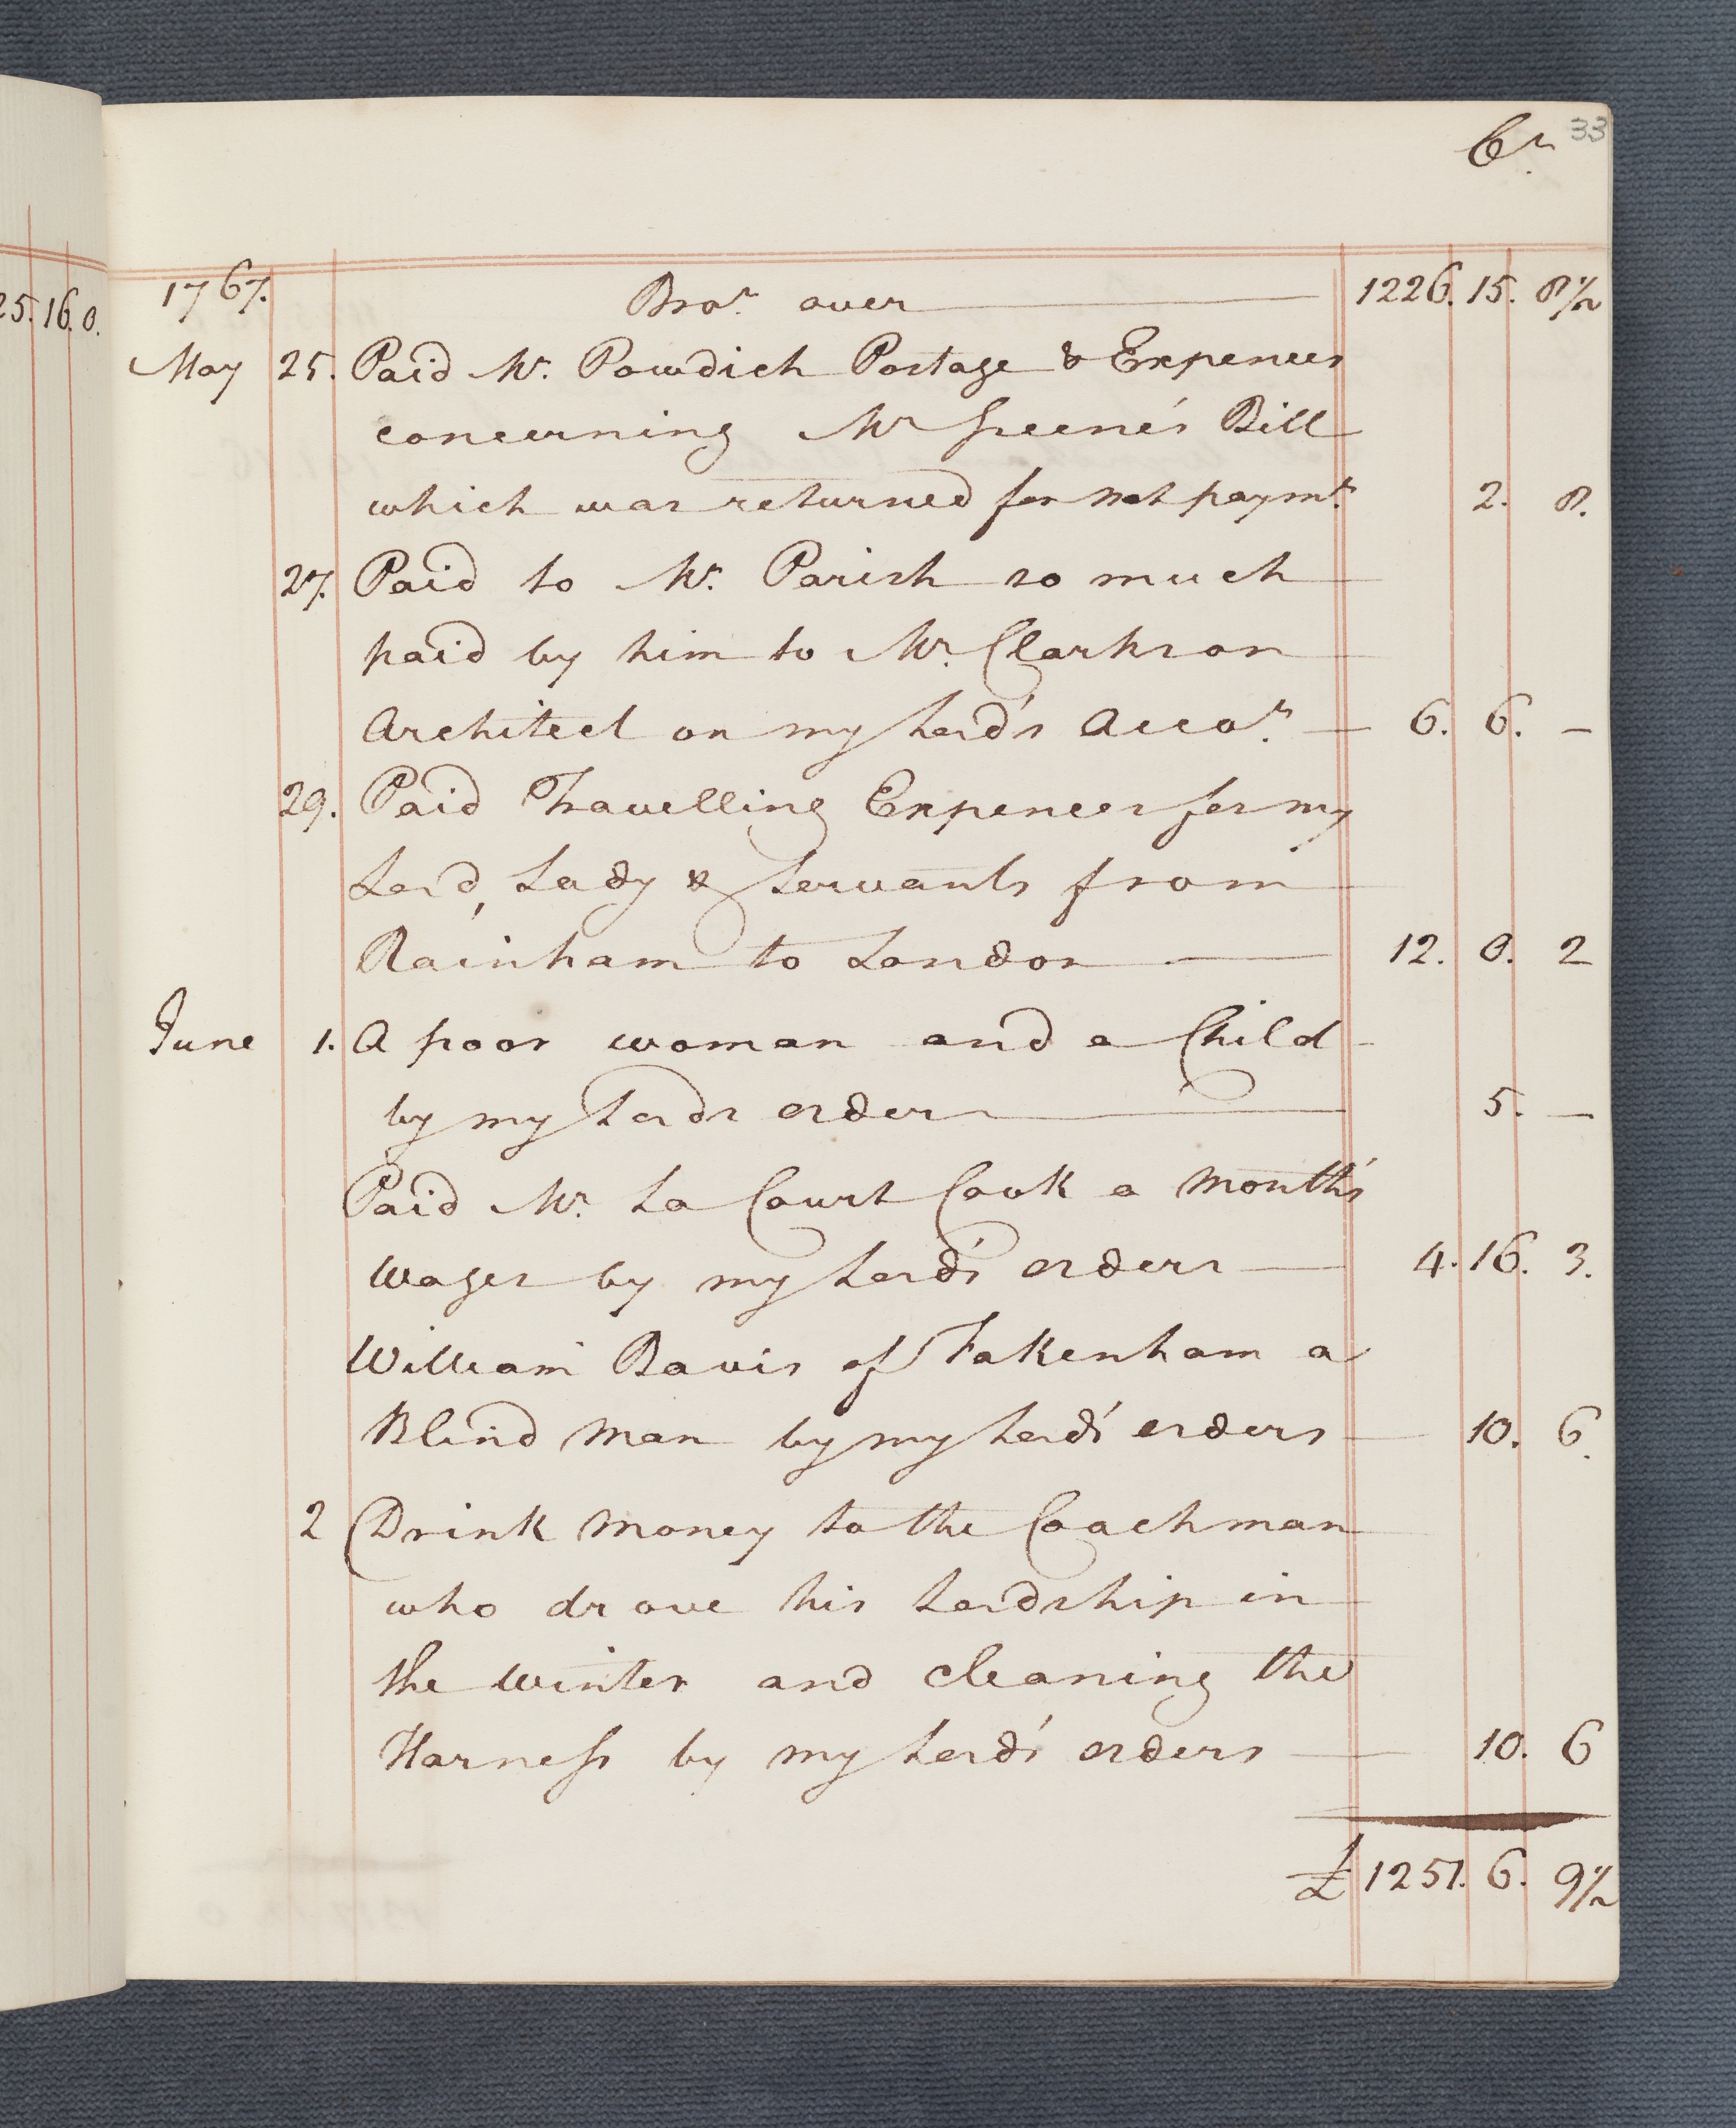 Cr. 33
25. 16. 0.
1767. Bro.t over 1226. 15. 8½
May 25. Paid Mr. Powdich Postage & Expences
concerning Mr Greene's Bill
which was returned for not paymt. 2. 8.
27. Paid to Mr. Parish so much
paid by him to Mr. Clarkson
Architect on my Lord's Acco.t 6. 6. —
29. Paid Travelling Expences for my
Lord, Lady & Servants from
Rainham to London 12. 0. 2
June 1. A poor woman and a Child
by my Lords orders 5. —
Paid Mr. La Court Cook a Month's
Wages by my Lord's orders 4. 16. 3.
William Bavis of Fakenham a
Blind Man by my Lord's orders 10. 6.
2 Drink Money to the Coachman
who drove his Lordship in
the Winter and Cleaning the
Harness by my Lord's orders 10. 6
£ 1251. 6. 9½